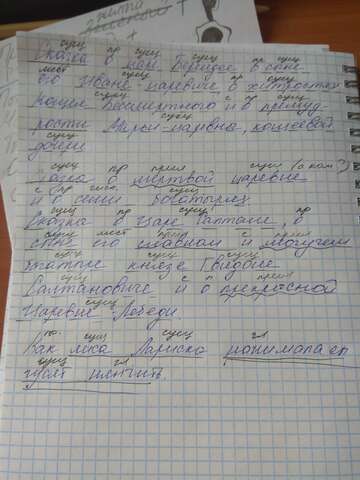 сущ пр сущ сущ пр сущ
Сказка о цар. Берендее, о сыне
мест сущ пр сущ
его Иване-царевиче, о хитростях
сущ
Кощея Бессмертного и о премуд-
рости Марьи-царевны, кощеевой
сущ
дочери
сущ пр прил сущ (о ком?)
Сказка о мёртвой царевне
с пр числ. сущ
и о семи богатырях
сущ пр сущ сущ пр
Сказка о царе Салтане, о
сущ мест прил с прил
сыне его славном и могучем
сущ
богатыре князе Гвидоне
сущ с п прил
Салтановиче и о прекрасной
сущ сущ
Царевне Лебеди
сущ сущ гл
Как лиса Лариска нанималась
сущ гл
гусят нянчить.